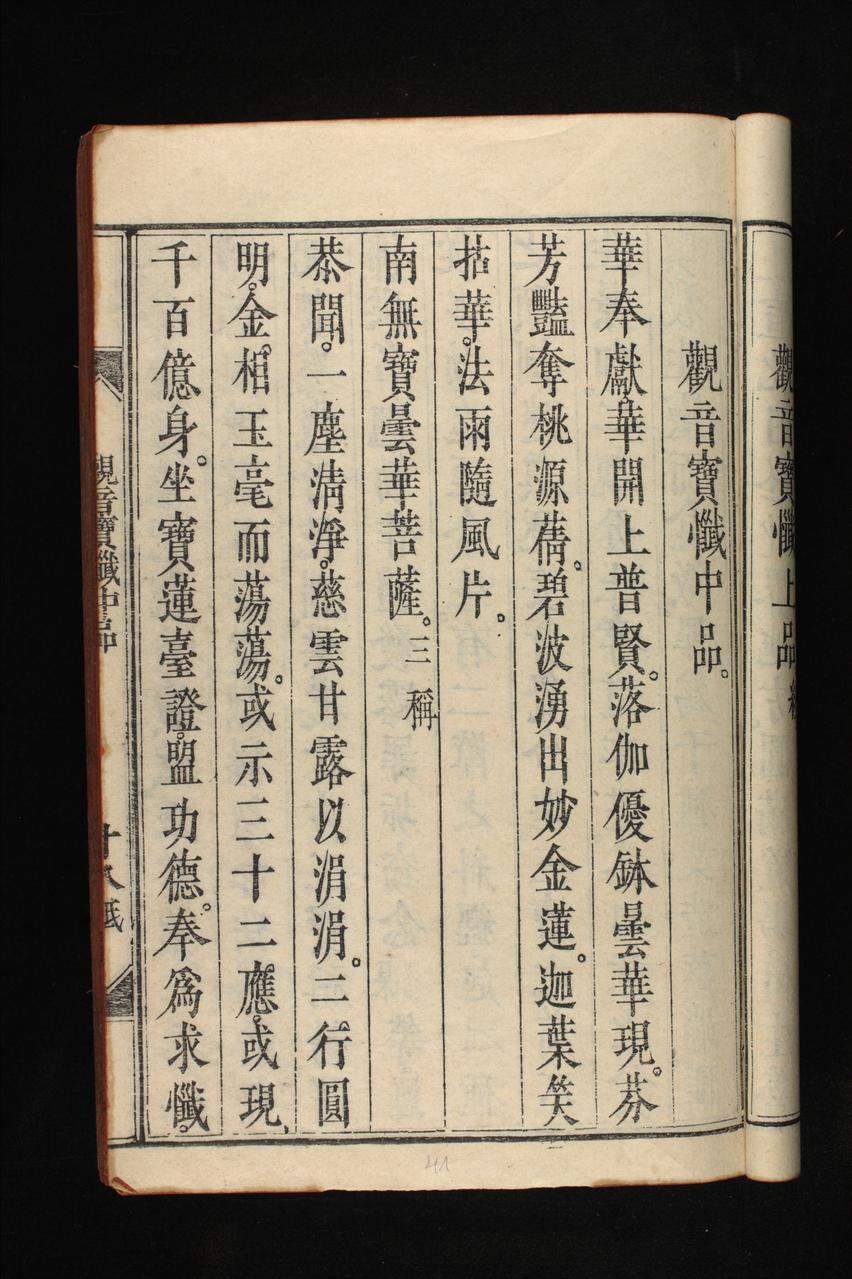 觀音寶懺上品終
觀音寶懺中品。
華奉獻。華開上普賢。落伽優鉢曇華現。芬
芳豔奪桃源蒨。碧波湧出妙金蓮。迦葉笑
拈華。法雨隨風片。
南無寶曇華菩薩。三稱
恭聞。一塵清淨。慈雲甘露以涓涓。二行圓
明。金相玉毫而蕩蕩。或示三十二應。或現
千百億身。坐寶蓮臺。證盟功德。奉為求懺。
觀音寶懺中品
十八紙
41